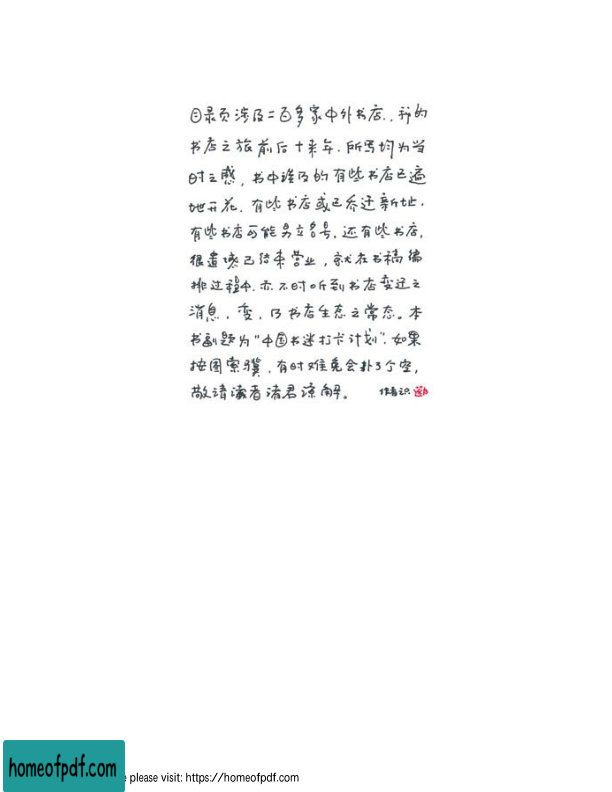 目录页涉及二百多家中外书店，我的
书店之旅前后十来年，所写均为当
时之感，书中谈及的有些书店已遍
地开花，有些书店或已乔迁新址，
有些书店可能另立名号，还有些书店，
很遗憾已结束营业，就在书稿编
排过程中，亦不时听到书店变迁之
消息，变，乃书店生态之常态。本
书副题为“中国书迷打卡计划”，如果
按图索骥，有时难免会扑了个空，
敬请读者诸君谅解。 作者识
homeofpdf.com
please visit: https://homeofpdf.com